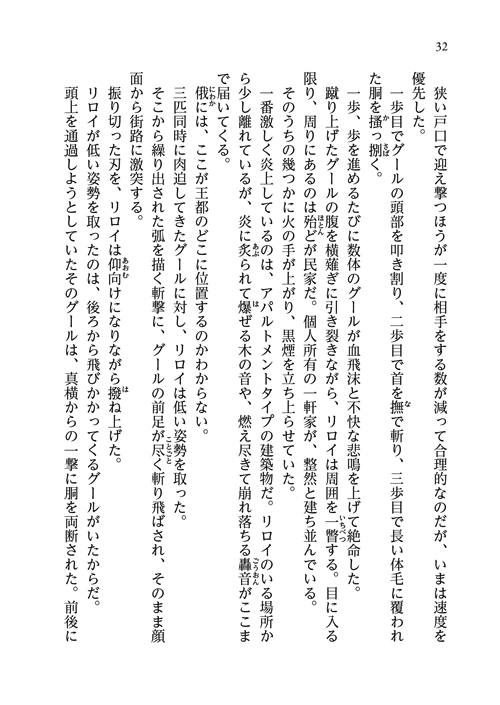 32
狭い戸口で迎え撃つほうが一度に相手をする数が減って合理的なのだが、いまは速度を
優先した。
一歩目でグールの頭部を叩き割り、二歩目で首を撫で斬り、三歩目で長い体毛に覆われ
た胴を掻っ捌く。
一歩、歩を進めるたびに数体のグールが血飛沫と不快な悲鳴を上げて絶命した。
蹴り上げたグールの腹を横薙ぎに引き裂きながら、リロイは周囲を一瞥する。目に入る
限り、周りにあるのは殆どが民家だ。個人所有の一軒家が、整然と建ち並んでいる。
そのうちの幾つかに火の手が上がり、黒煙を立ち上らせていた。
一番激しく炎上しているのは、アパルトメントタイプの建築物だ。リロイのいる場所か
ら少し離れているが、炎に炙られて爆ぜる木の音や、燃え尽きて崩れ落ちる轟音がここま
で届いてくる。
俄には、ここが王都のどこに位置するのかわからない。
三匹同時に肉迫してきたグールに対し、リロイは低い姿勢を取った。
そこから繰り出された弧を描く斬撃に、グールの前足が尽く斬り飛ばされ、そのまま顔
面から街路に激突する。
振り切った刃を、リロイは仰向けになりながら撥ね上げた。
リロイが低い姿勢を取ったのは、後ろから飛びかかってくるグールがいたからだ。
頭上を通過しようとしていたそのグールは、真横からの一撃に胴を両断された。前後に